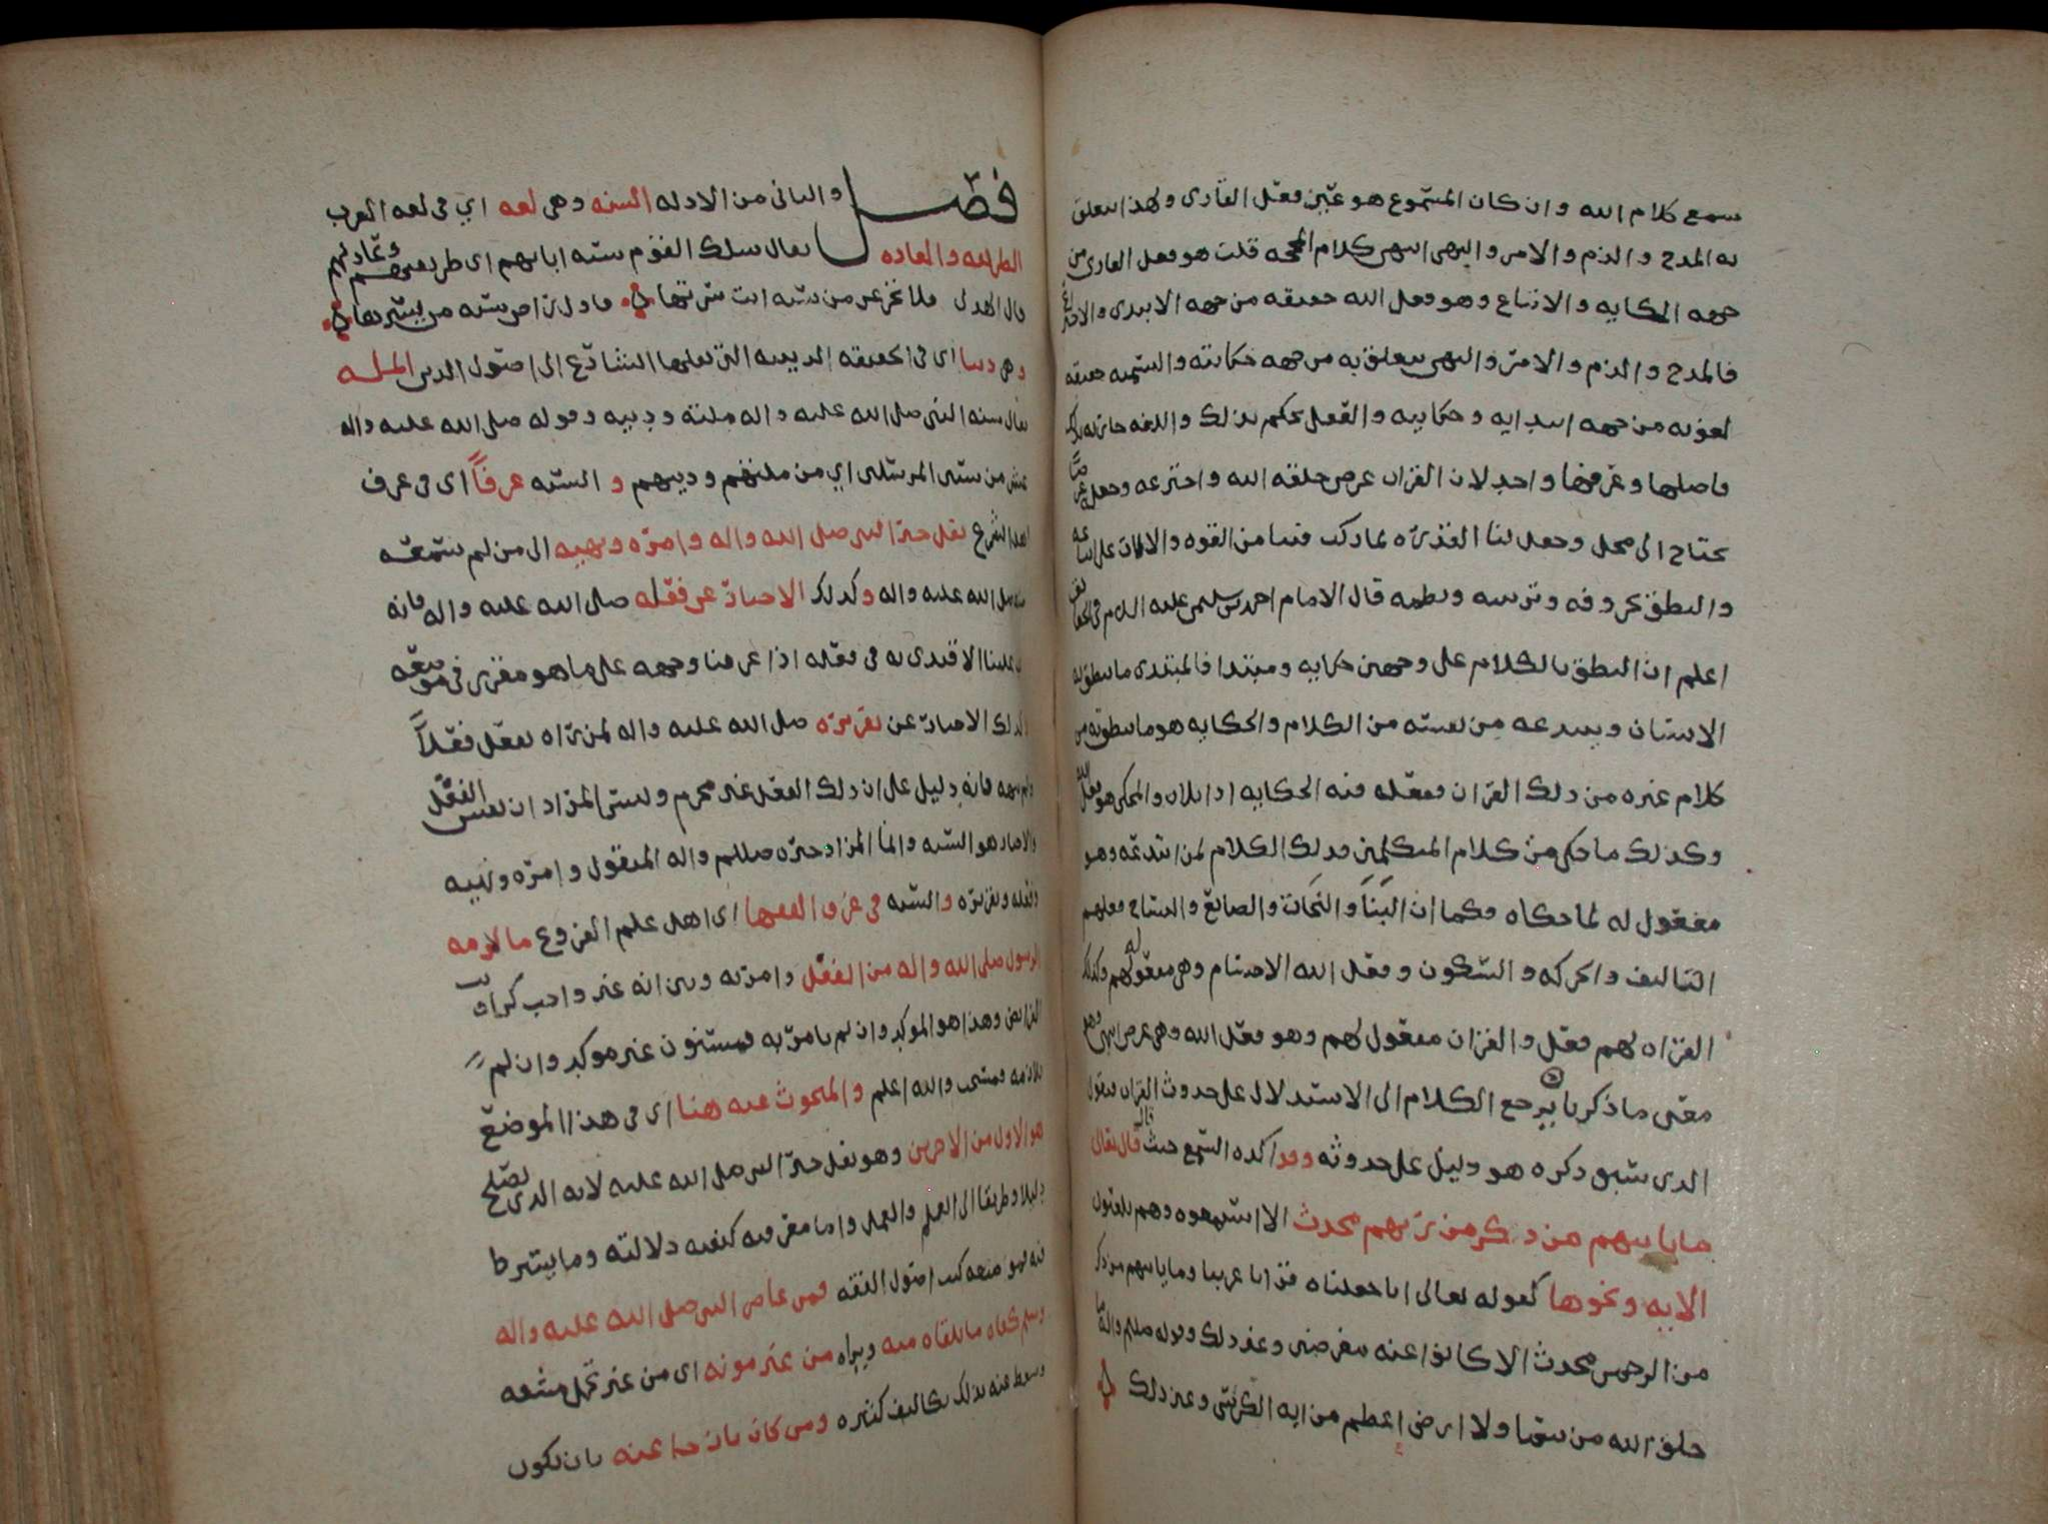 سمع كلام الله وان كان المسموع هو عين فعل القارى ولهذا يتعلق
به المدح والذم والامر والنهى انتهى كلام الحجه قلت هو فعل القارى من
جهه الحكايه والاتباع وهو فعل الله حقيقه من جهه الابتدى والاختراع
فالمدح والذم والامر والنهى يتعلق به من جهه حكايته والتسميه حقيقه
لغويه من جهه ابتدايه وحكايته والعقل يحكم بذلك واللغه جاريه بذلك
فاصلها وعرفها واحد لان القران عرض خلقه الله واخترعه وجعله
يحتاج الى محل وجعل لنا القدره بما ركب فينا من القوه والالات على
والنطق بحروفه وترتيبه ونظمه قال الامام احمد بن سليمن عليه السلام فى
اعلم ان النطق بالكلام على وجهين حكايه ومبتدا فالمبتدى ما ينطق به
الانسان ويبتدعه من نفسه من الكلام والحكايه هو ما ينطق به من
كلام غيره من ذلك القران ففعله فيه الحكايه اذا تلاه والمحكى هو فعل الله
وكذلك ما حكى من كلام المتكلمين فذلك الكلام لمن ابتدعه وهو
مفعول له لما حكاه فكما ان البنا والنحات والصايغ والنساج فعلهم
التاليف والحركه والسكون وفعل الله الاجسام وهى مفعول لهم وكذلك
القراه لهم فعل والقران مفعول لهم وهو فعل الله وهى عرض انتهى وهو
معنى ما ذكرنا يرجع الكلام الى الاستدلال على حدوث القران فنقول
الذى سبق ذكره هو دليل على حدوثه وقد اكده السمع حيث قال تعالى
ما ياتيهم من ذكر من ربهم محدث الا استمعوه وهم يلعبون
الايه ونحوها كقوله تعالى انا جعلناه قرانا عربيا وما ياتيهم من ذكر
من الرحمن محدث الا كانوا عنه معرضين وغير ذلك وقوله صللم واله ما
خلق الله من سما ولا ارض اعظم من ايه الكرسى وغير ذلك
فصل والثانى من الادله السنه وهى لغه اي فى لغه العرب
الطريقه والعاده يقال سلك القوم سنه ابايهم اى طريقتهم وعادتهم
قال الهذلى فلا تجزعن من سنه انت سرتها فاول راض سنه من يسيرها
وهى دينا اى فى الحقيقه الدينيه التى نقلها الشارع الى اصول الدين المله
يقال سنه النبى صلى الله عليه واله ملته ودينه وقوله صلى الله عليه واله
من سنن المرسلين اي من ملتهم ودينهم والسنه عرفا اى فى عرف
اهل الشرع نقل خبر النبى صلى الله واله وامره ونهيه الى من لم يسمعه
منه صلى الله عليه واله وكذلك الاخبار عن فعله صلى الله عليه واله فانه
علينا الاقتدى به فى فعله اذا عرفنا وجهه على ما هو مقرر فى موضعه
وكذلك الاخبار عن تقريره صلى الله عليه واله لمن راه يفعل فعلا
ولم ينهه فانه دليل على ان ذلك الفعل غير محرم وليس المراد ان نفس الفعل
والاخبار هو السنه وانما المراد خبره صللم واله المنقول وامره ونهيه
وفعله وتقريره والسنه فى عرف الفقها اى اهل علم الفروع ما لازمه
الرسول صلى الله واله من الفعل وامر به وبين انه غير واجب كرواتب
الفرايض وهذا هو الموكد وان لم يامر به فمسنون غير موكد وان لم
يلازمه فمستحب والله اعلم والمبحوث عنه هنا اى فى هذا الموضع
هو الاول من الاخرين وهو نقل خبر النبى صلى الله عليه لانه الذى يصلح
دليلا وطريقا الى العلم والعمل واما معرفه كيفيه دلالته وما يشترط
فيه فهو موضعه كتب اصول الفقه فمن عاصر النبى صلى الله عليه واله
وسلم كفاه ما يلقاه منه ويراه من غير مونه اى من غير تحمل مشقه
وسقط عنه بذلك تكاليف كثيره ومن كان نازحا عنه بان يكون